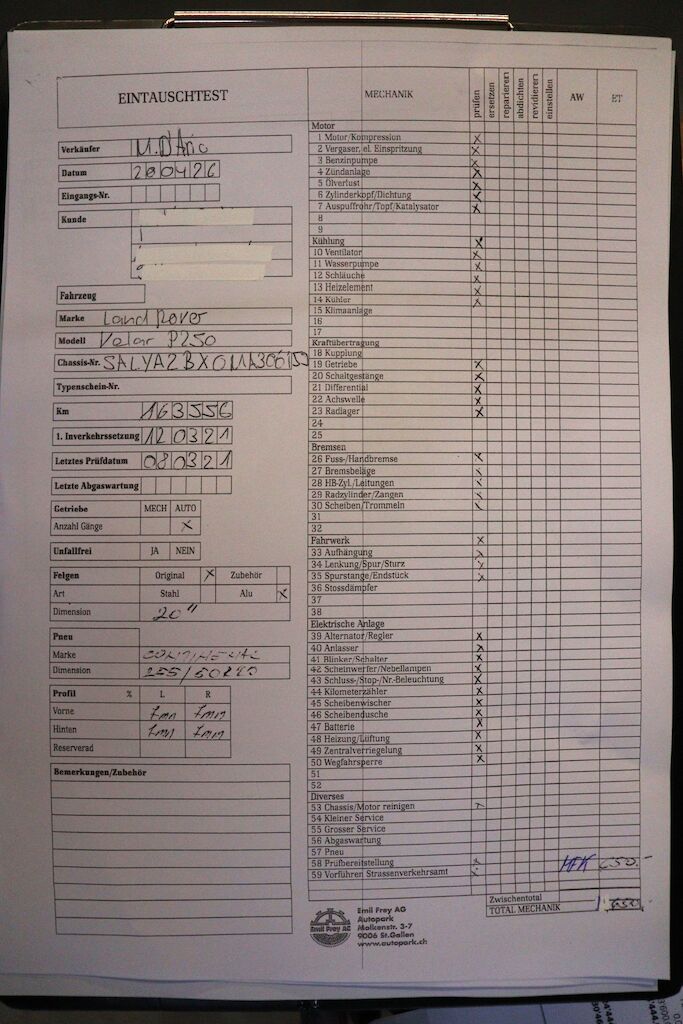 EINTAUSCHTEST
Verkäufer M. D'Ario
Datum 280426
Eingangs-Nr.
Kunde
Fahrzeug
Marke Land Rover
Modell Velar P250
Chassis-Nr.
Typenschein-Nr.
Km 163556
1. Inverkehrssetzung 120321
Letztes Prüfdatum 080321
Letzte Abgaswartung
Getriebe MECH AUTO
Anzahl Gänge X
Unfallfrei JA NEIN
Felgen Original X Zubehör
Art Stahl Alu X
Dimension 20"
Pneu
Marke CONTINENTAL
Dimension 255/50R20
Profil % L R
Vorne 7mm 7mm
Hinten 7mm 7mm
Reserverad
Bemerkungen/Zubehör
MECHANIK prüfen ersetzen reparieren abdichten revidieren einstellen AW ET
Motor
1 Motor/Kompression X
2 Vergaser, el. Einspritzung X
3 Benzinpumpe X
4 Zündanlage X
5 Ölverlust X
6 Zylinderkopf/Dichtung X
7 Auspuffrohr/Topf/Katalysator X
8
9
Kühlung X
10 Ventilator X
11 Wasserpumpe X
12 Schläuche X
13 Heizelement X
14 Kühler X
15 Klimaanlage
16
17
Kraftübertragung
18 Kupplung
19 Getriebe X
20 Schaltgestänge X
21 Differential X
22 Achswelle X
23 Radlager X
24
25
Bremsen
26 Fuss-/Handbremse X
27 Bremsbeläge X
28 HB-Zyl./Leitungen X
29 Radzylinder/Zangen X
30 Scheiben/Trommeln X
31
32
Fahrwerk X
33 Aufhängung X
34 Lenkung/Spur/Sturz X
35 Spurstange/Endstück X
36 Stossdämpfer
37
38
Elektrische Anlage
39 Alternator/Regler X
40 Anlasser X
41 Blinker/Schalter X
42 Scheinwerfer/Nebellampen X
43 Schluss-/Stop-/Nr.-Beleuchtung X
44 Kilometerzähler X
45 Scheibenwischer X
46 Scheibendusche X
47 Batterie X
48 Heizung/Lüftung X
49 Zentralverriegelung X
50 Wegfahrsperre X
51
52
Diverses
53 Chassis/Motor reinigen
54 Kleiner Service
55 Grosser Service
56 Abgaswartung
57 Pneu
58 Prüfbereitstellung X MFK 650.-
59 Vorführen Strassenverkehrsamt
Zwischentotal
TOTAL MECHANIK 650.-
Emil Frey AG
Emil Frey AG
Autopark
Molkenstr. 3-7
9006 St.Gallen
www.autopark.ch